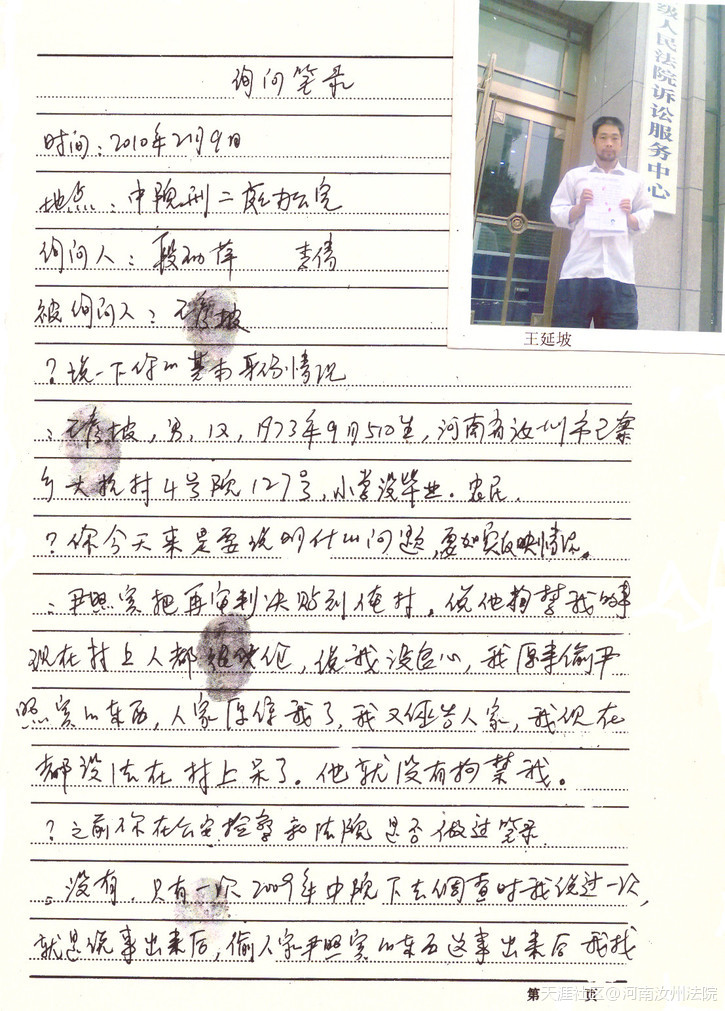 级人民法院诉讼服务中心
王延坡
询问笔录
时间：2010年2月9日
地点：中院刑二庭办公室
询问人：段 萍 李倩
被询问人：王彦坡
？说一下你的基本身份情况
：王彦坡，男，汉，1973年9月5日生，河南省汝州市 寨
乡大 村4号院127号，小学没毕业。农民。
？你今天来是要说明什么问题，要如实反映情况。
：尹照宾把再审判决贴到俺村。说他拘禁我的事
现在村上人都 ，说我没良心，我原来偷尹
照宾的东西，人家原谅我了，我又诬告人家，我现在
都没法在村上呆了。他就没有拘禁我。
？之前你在公安检察和法院是否做过笔录
：没有，只有一次2009年中院下去调查时我说过一次，
就是说事出来后，偷人家尹照宾的东西这事出来后我找
第 页
天涯社区@河南汝州法院